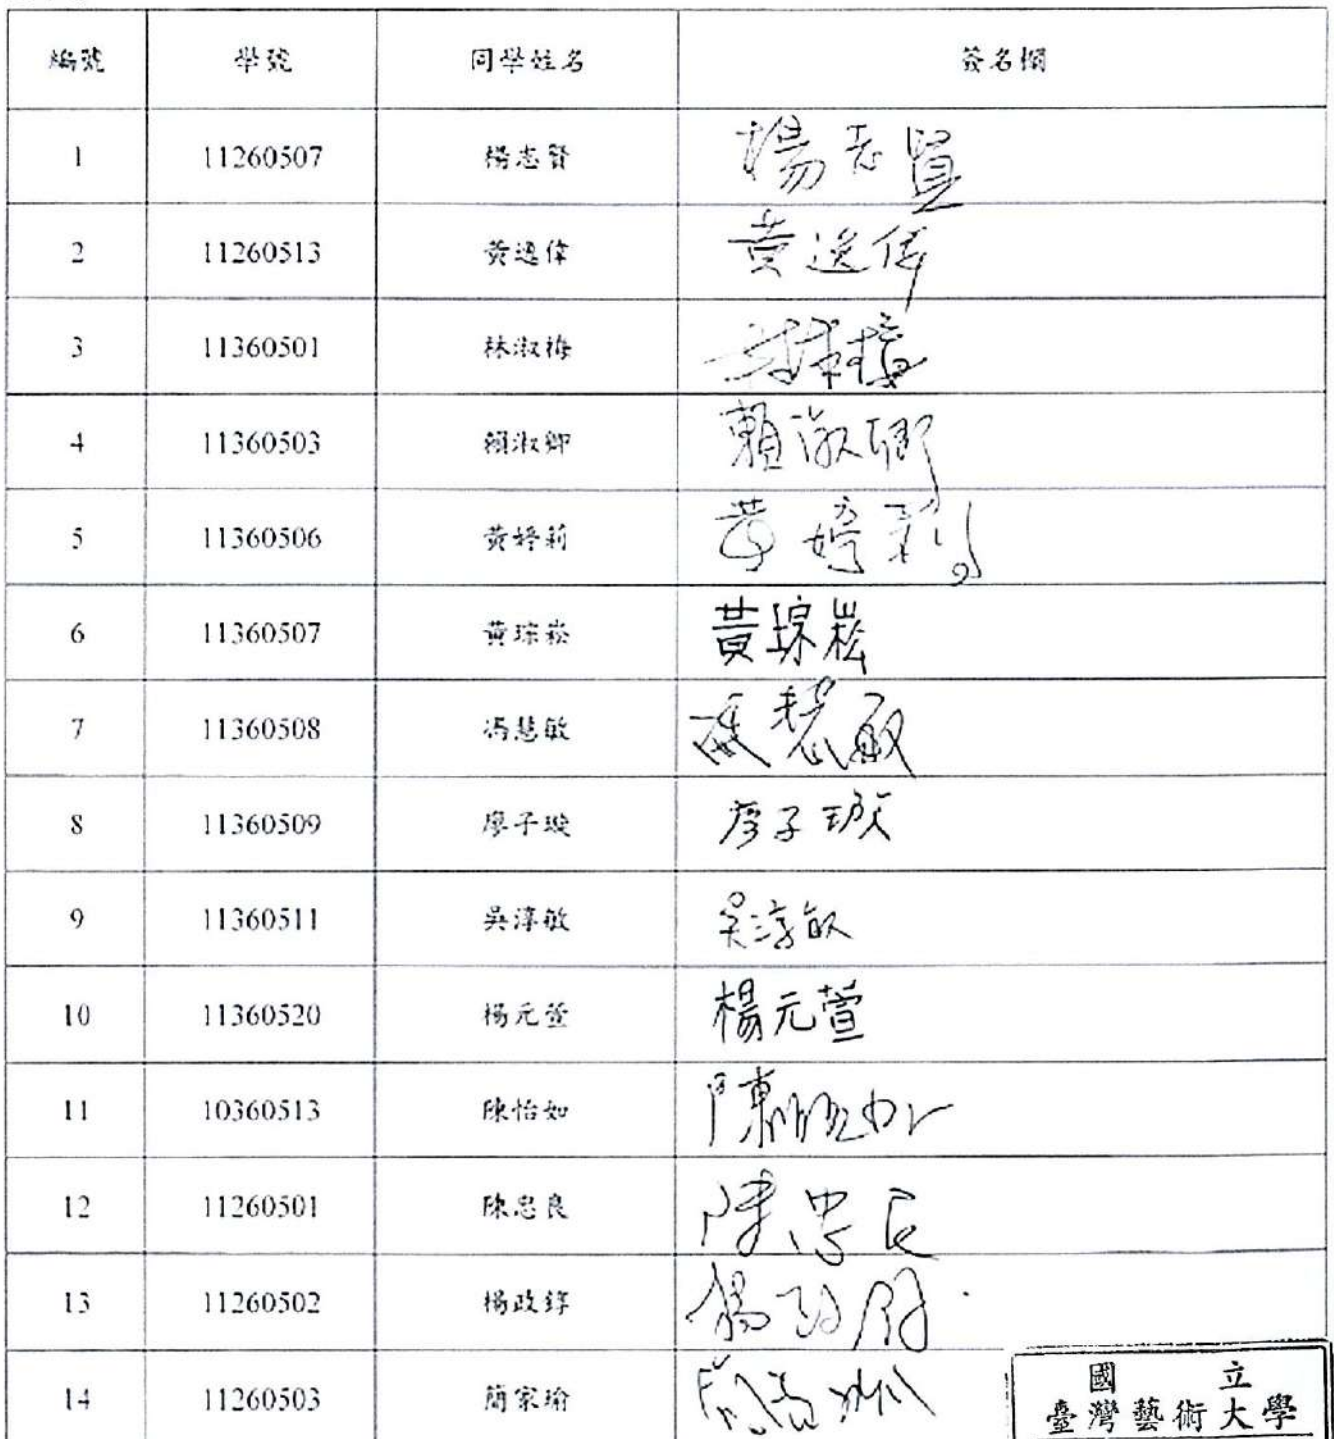 編號 學號 同學姓名 簽名欄
1 11260507 楊志賢 楊志賢
2 11260513 黃逸偉 黃逸偉
3 11360501 林淑梅
4 11360503 賴淑卿 賴淑卿
5 11360506 黃婷莉 黃婷莉
6 11360507 黃琮崧 黃琮崧
7 11360508 馮慧敏 馮慧敏
8 11360509 廖子璇 廖子璇
9 11360511 吳淳敏 吳淳敏
10 11360520 楊元萱 楊元萱
11 10360513 陳怡如 陳怡如
12 11260501 陳忠良 陳忠良
13 11260502 楊政錞
14 11260503 簡家瑜
國立
臺灣藝術大學